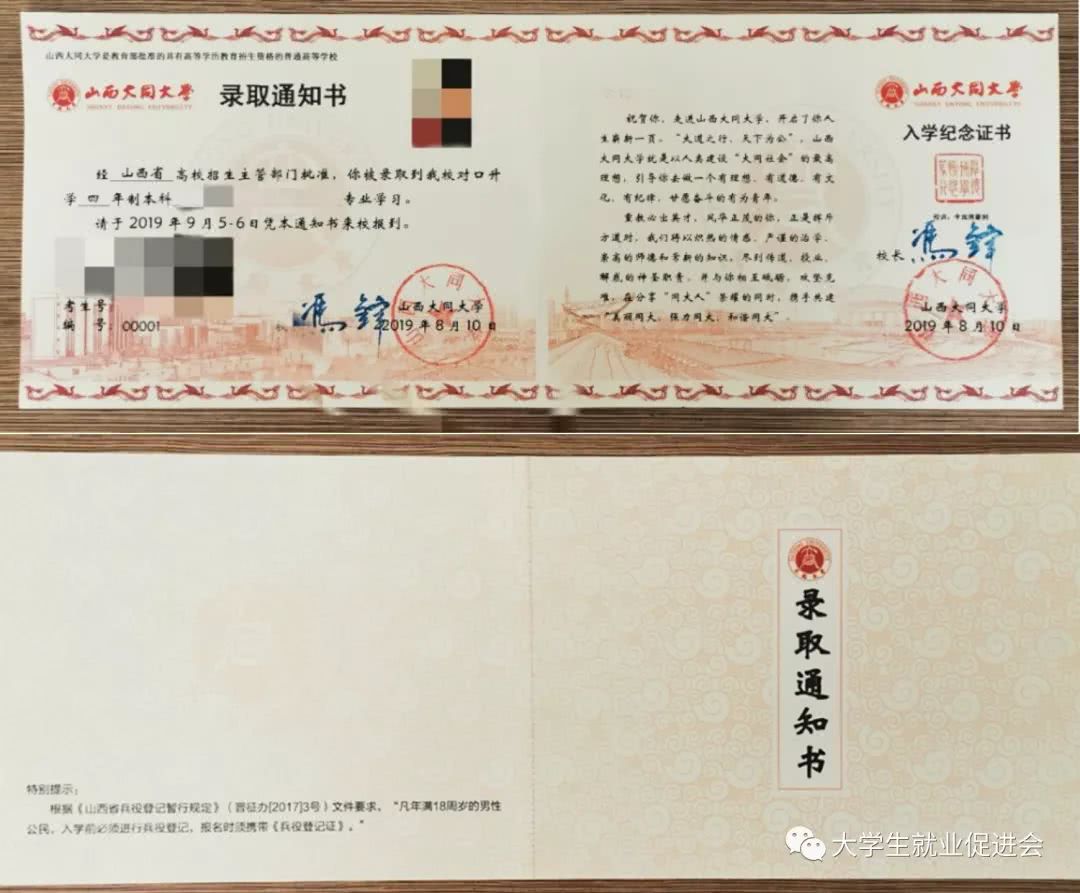 山西大同大学是教育部批准的具有高等学历教育招生资格的普通高等学校
山西大同大学
SHANXI DATONG UNIVERSITY
录取通知书
经 山西省 高校招生主管部门批准，你被录取到我校对口升
学 四 年制本科 专业学习。
请于 2019 年 9 月 5-6 日凭本通知书来校报到。
考生号
编 号：00001
冯锋
山西大同大学
2019 年 8 月 10 日
祝贺你，走进山西大同大学，开启了你人
生崭新一页。“大道之行，天下为公”，山西
大同大学就是以人类建设“大同社会”的最高
理想，引导你去做一个有理想、有道德、有文
化、有纪律，甘愿奋斗的有为青年。
重教必出英才，风华正茂的你，正是挥斥
方遒时，我们将以炽热的情感、严谨的治学、
崇高的师德和常新的知识，尽到传道、授业、
解惑的神圣职责，并与你相互砥砺，攻坚克
难，在分享“同大人”荣耀的同时，携手共建
“美丽同大，强力同大，和谐同大”。
山西大同大学
SHANXI DATONG UNIVERSITY
入学纪念证书
校长
冯锋
山西大同大学
2019 年 8 月 10 日
特别提示：
根据《山西省兵役登记暂行规定》（晋征办[2017]3号）文件要求，“凡年满18周岁的男性
公民，入学前必须进行兵役登记，报名时须携带《兵役登记证》。”
录取通知书
大学生就业促进会